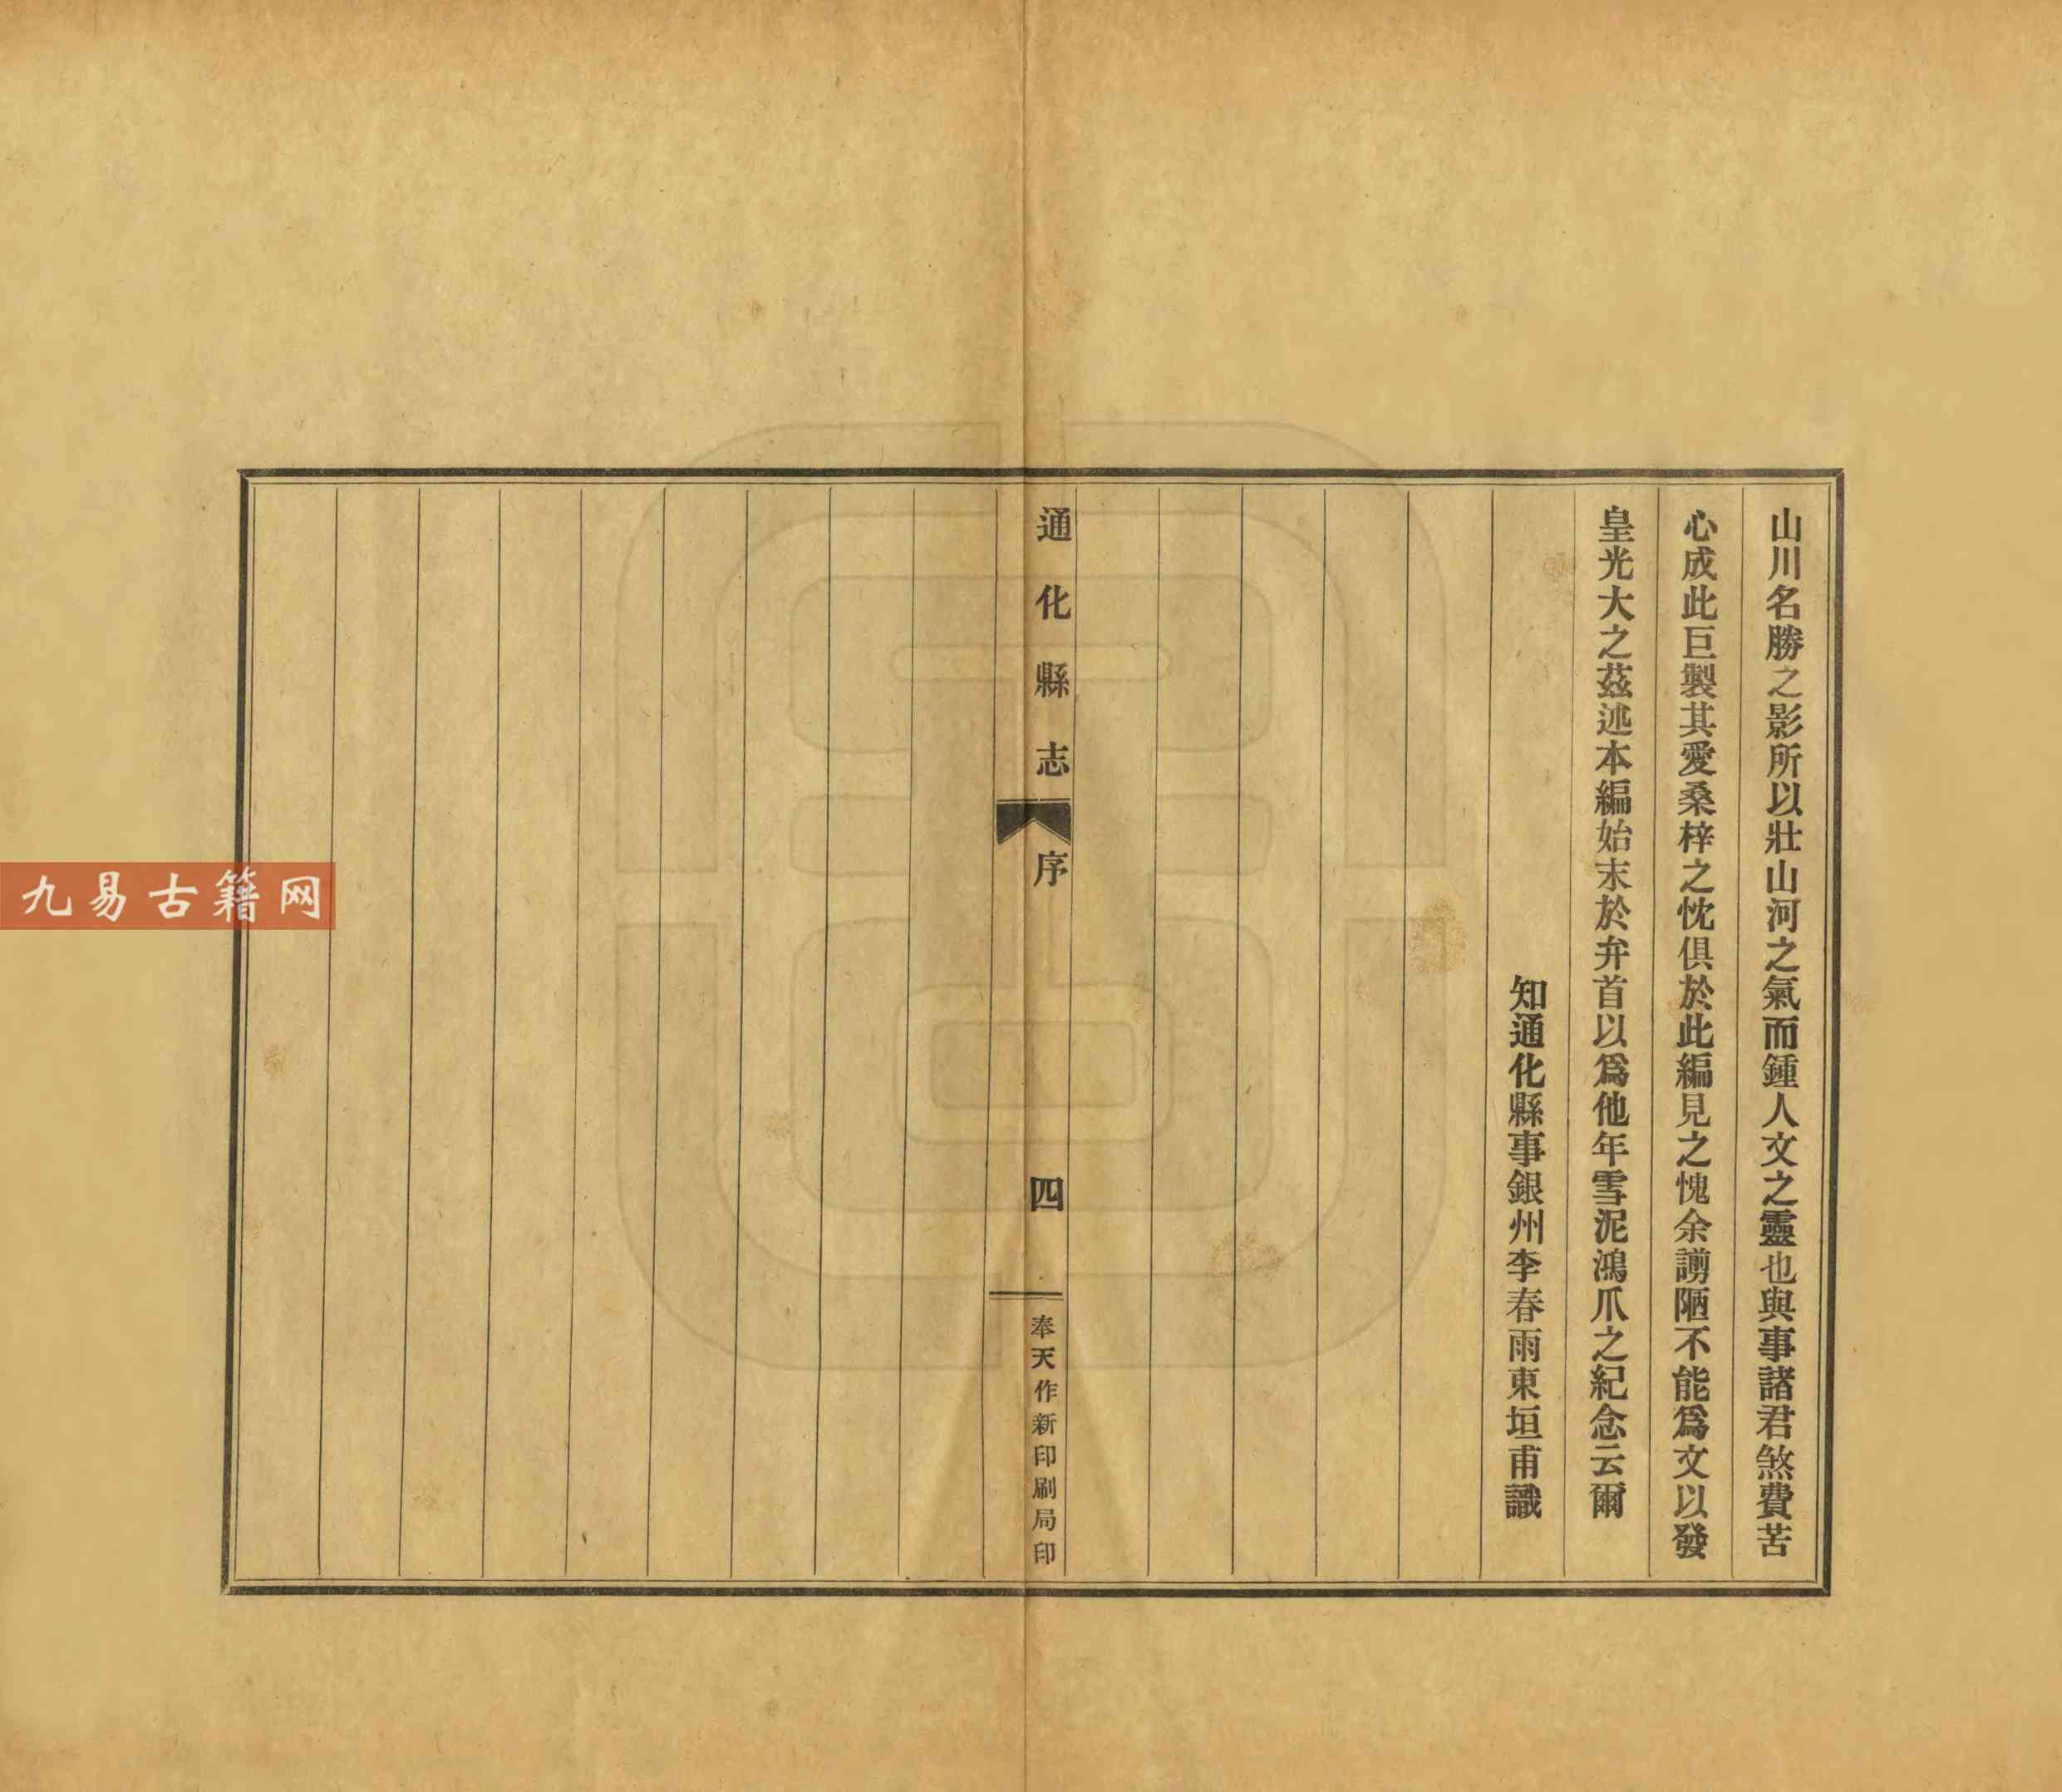 山川名勝之影所以壯山河之氣而鍾人文之靈也與事諸君煞費苦
心成此巨製其愛桑梓之忱俱於此編見之愧余謭陋不能爲文以發
皇光大之茲述本編始末於弁首以爲他年雪泥鴻爪之紀念云爾
知通化縣事銀州李春雨東垣甫識
通化縣志
序
四
奉天作新印刷局印
九易古籍网